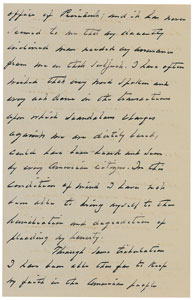 office of President; and it has never
occurred to me that any decently
inclined man needed any assurance
from me on that subject. I have often
wished that every word spoken and
every act done in the transactions
upon which scandalous charges
against me are based,
could have been heard and seen
by every American citizen. In this
condition of mind I have not
been able to bring myself to the
humiliation and degradation of
pleading my honesty.
Through some tribulation
I have been able thus far to keep
my faith in the American people